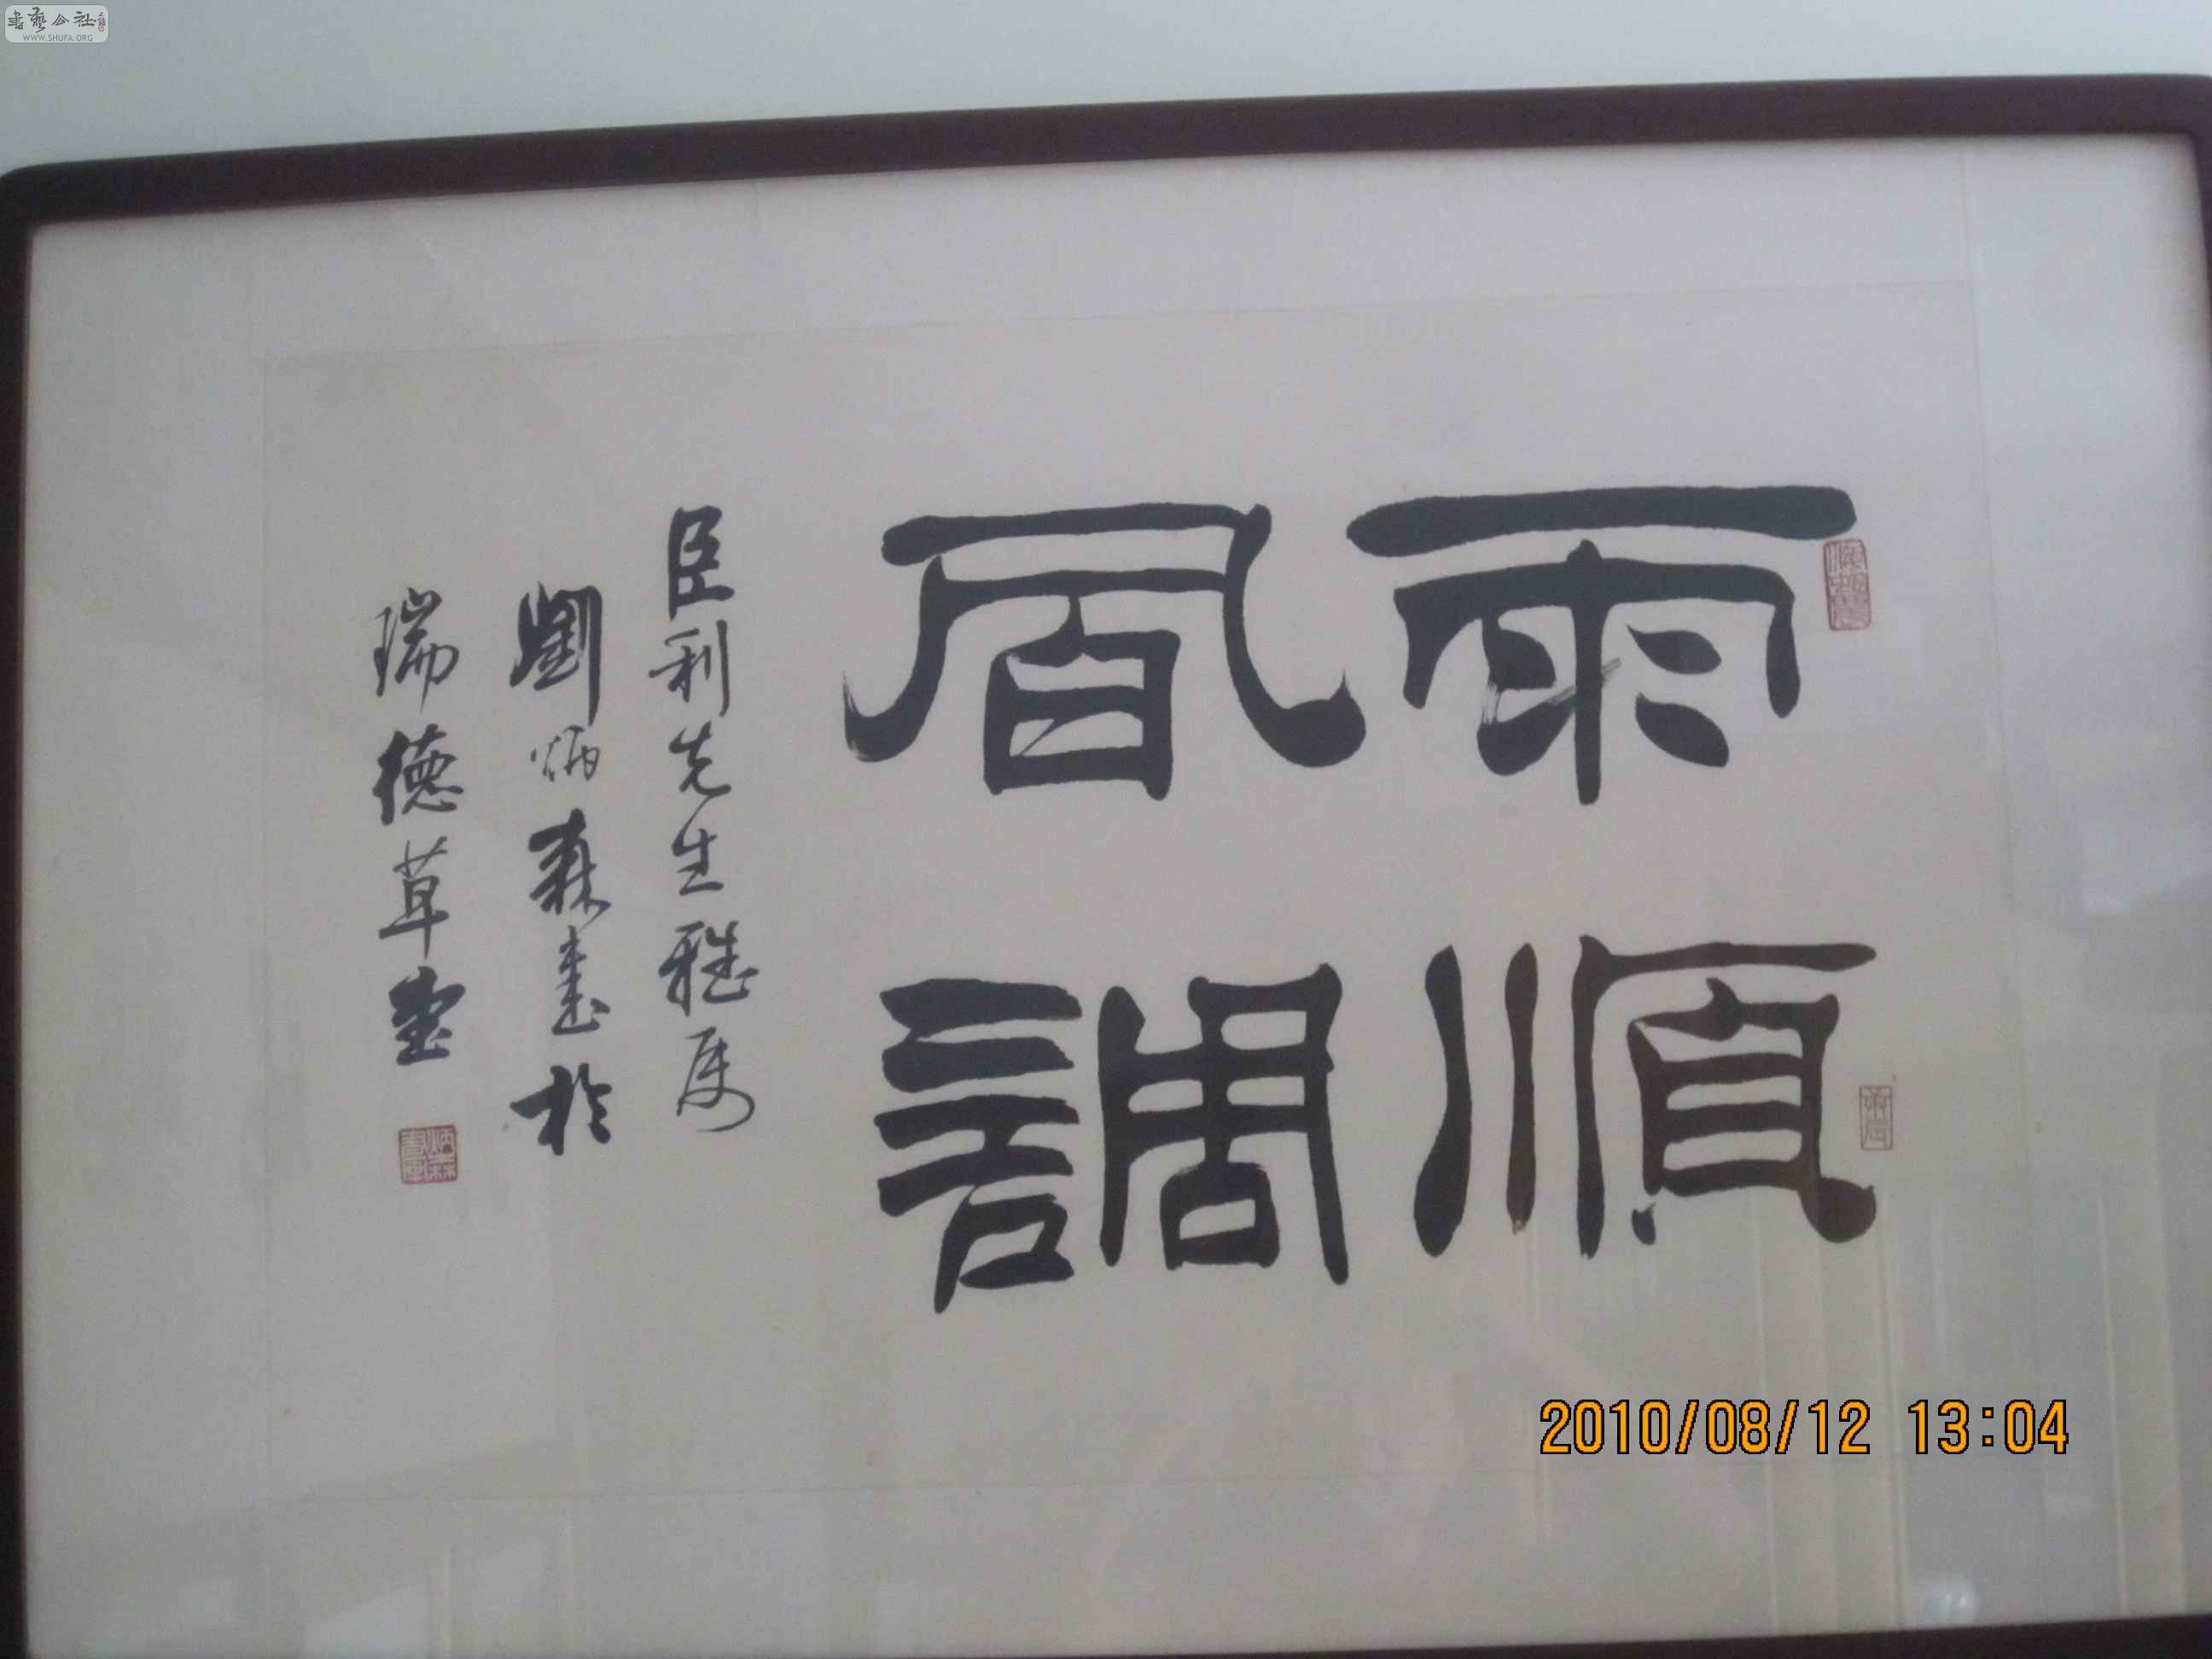 書藝公社
WWW.SHUFA.ORG
雨順
風調
臣利先生雅属
劉炳森書於
瑞德草堂
2010/08/12 13:04